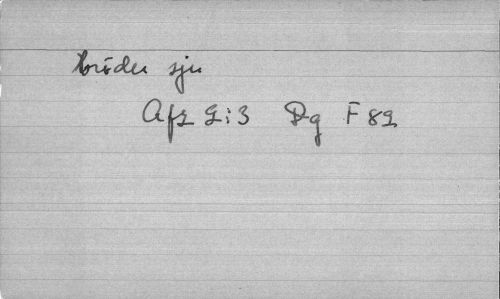 bröder sju
Afz G:3 Dg F 82